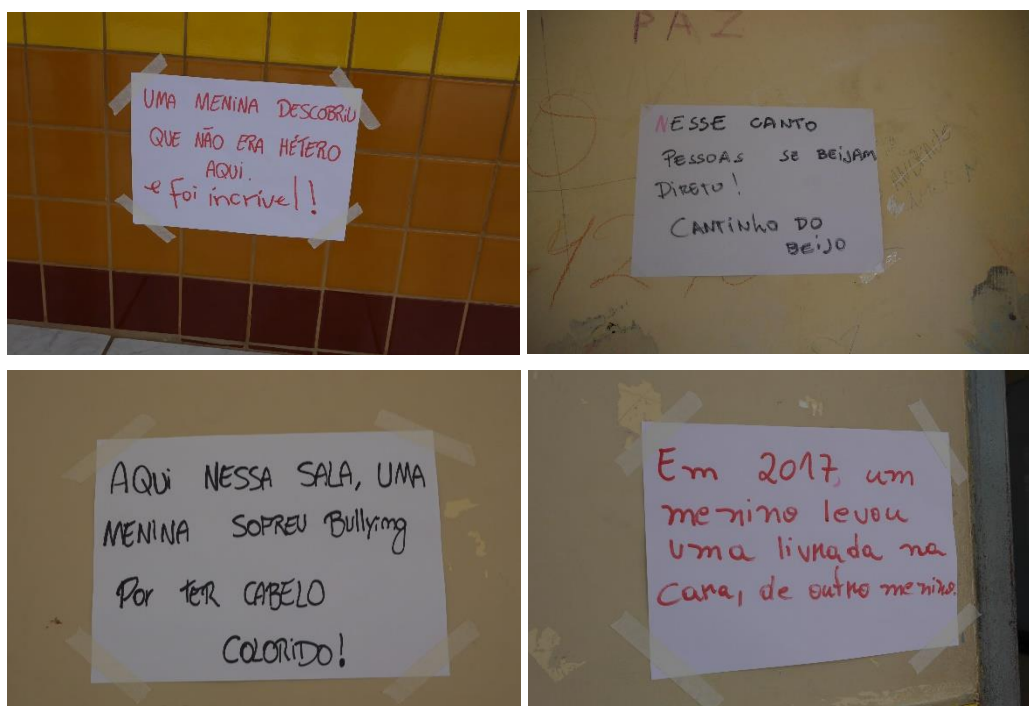 UMA MENINA DESCOBRIU
QUE NÃO ERA HÉTERO
AQUI.
e Foi incrível!
PAZ
NESSE CANTO
PESSOAS SE BEIJAM
DIRETO!
CANTINHO DO
BEIJO
AQUI NESSA SALA, UMA
MENINA SOFREU Bullying
Por TER CABELO
COLORIDO!
Em 2017, um
menino levou
uma livrada na
cara, de outro menino.